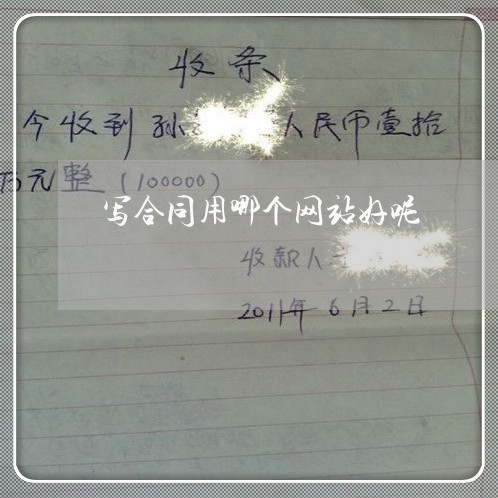 收条
今收到孙 人民币壹拾
万元整(100000)
写合同用哪个网站好呢
收款人
2011年6月2日